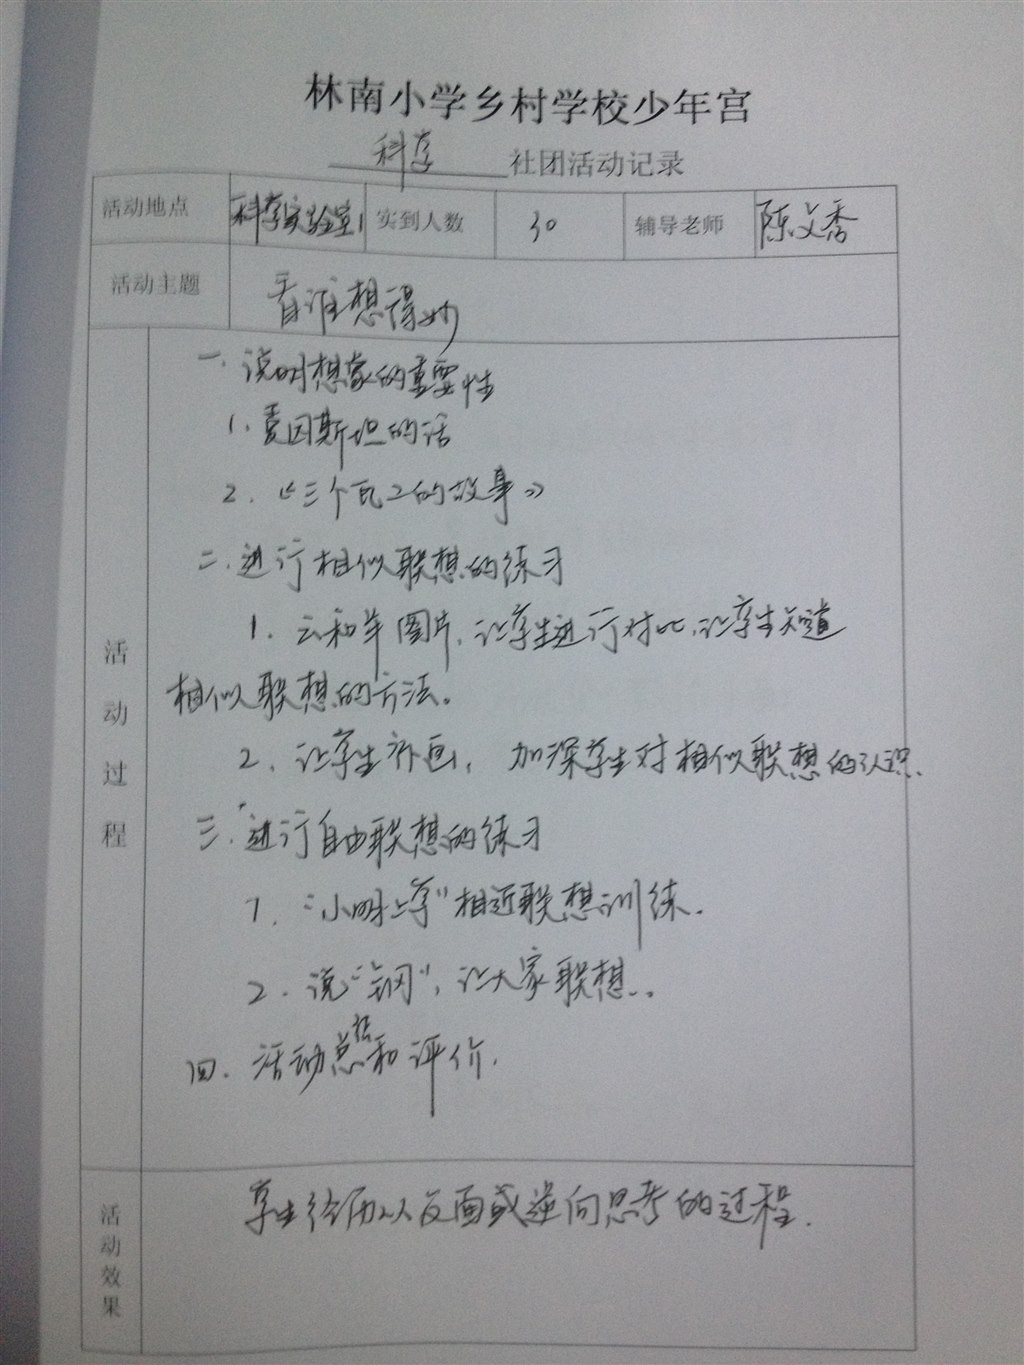 林南小学乡村学校少年宫
科学 社团活动记录
活动地点 科学实验室1 实到人数 30 辅导老师 陈文香
活动主题 看谁想得妙
活动过程
一、说明想象的重要性
1、爱因斯坦的话
2.《三个瓦工的故事》
二.进行相似联想的练习
1. 云和羊图片,让学生进行对比,让学生知道
相似联想的方法。
2、让学生补画,加深学生对相似联想的认识.
三.进行自由联想的练习
1."小明上学"相近联想训练.
2.说"钢",让大家联想.
四.活动总结和评价.
活动效果
学生经历以反面或逆向思考的过程.